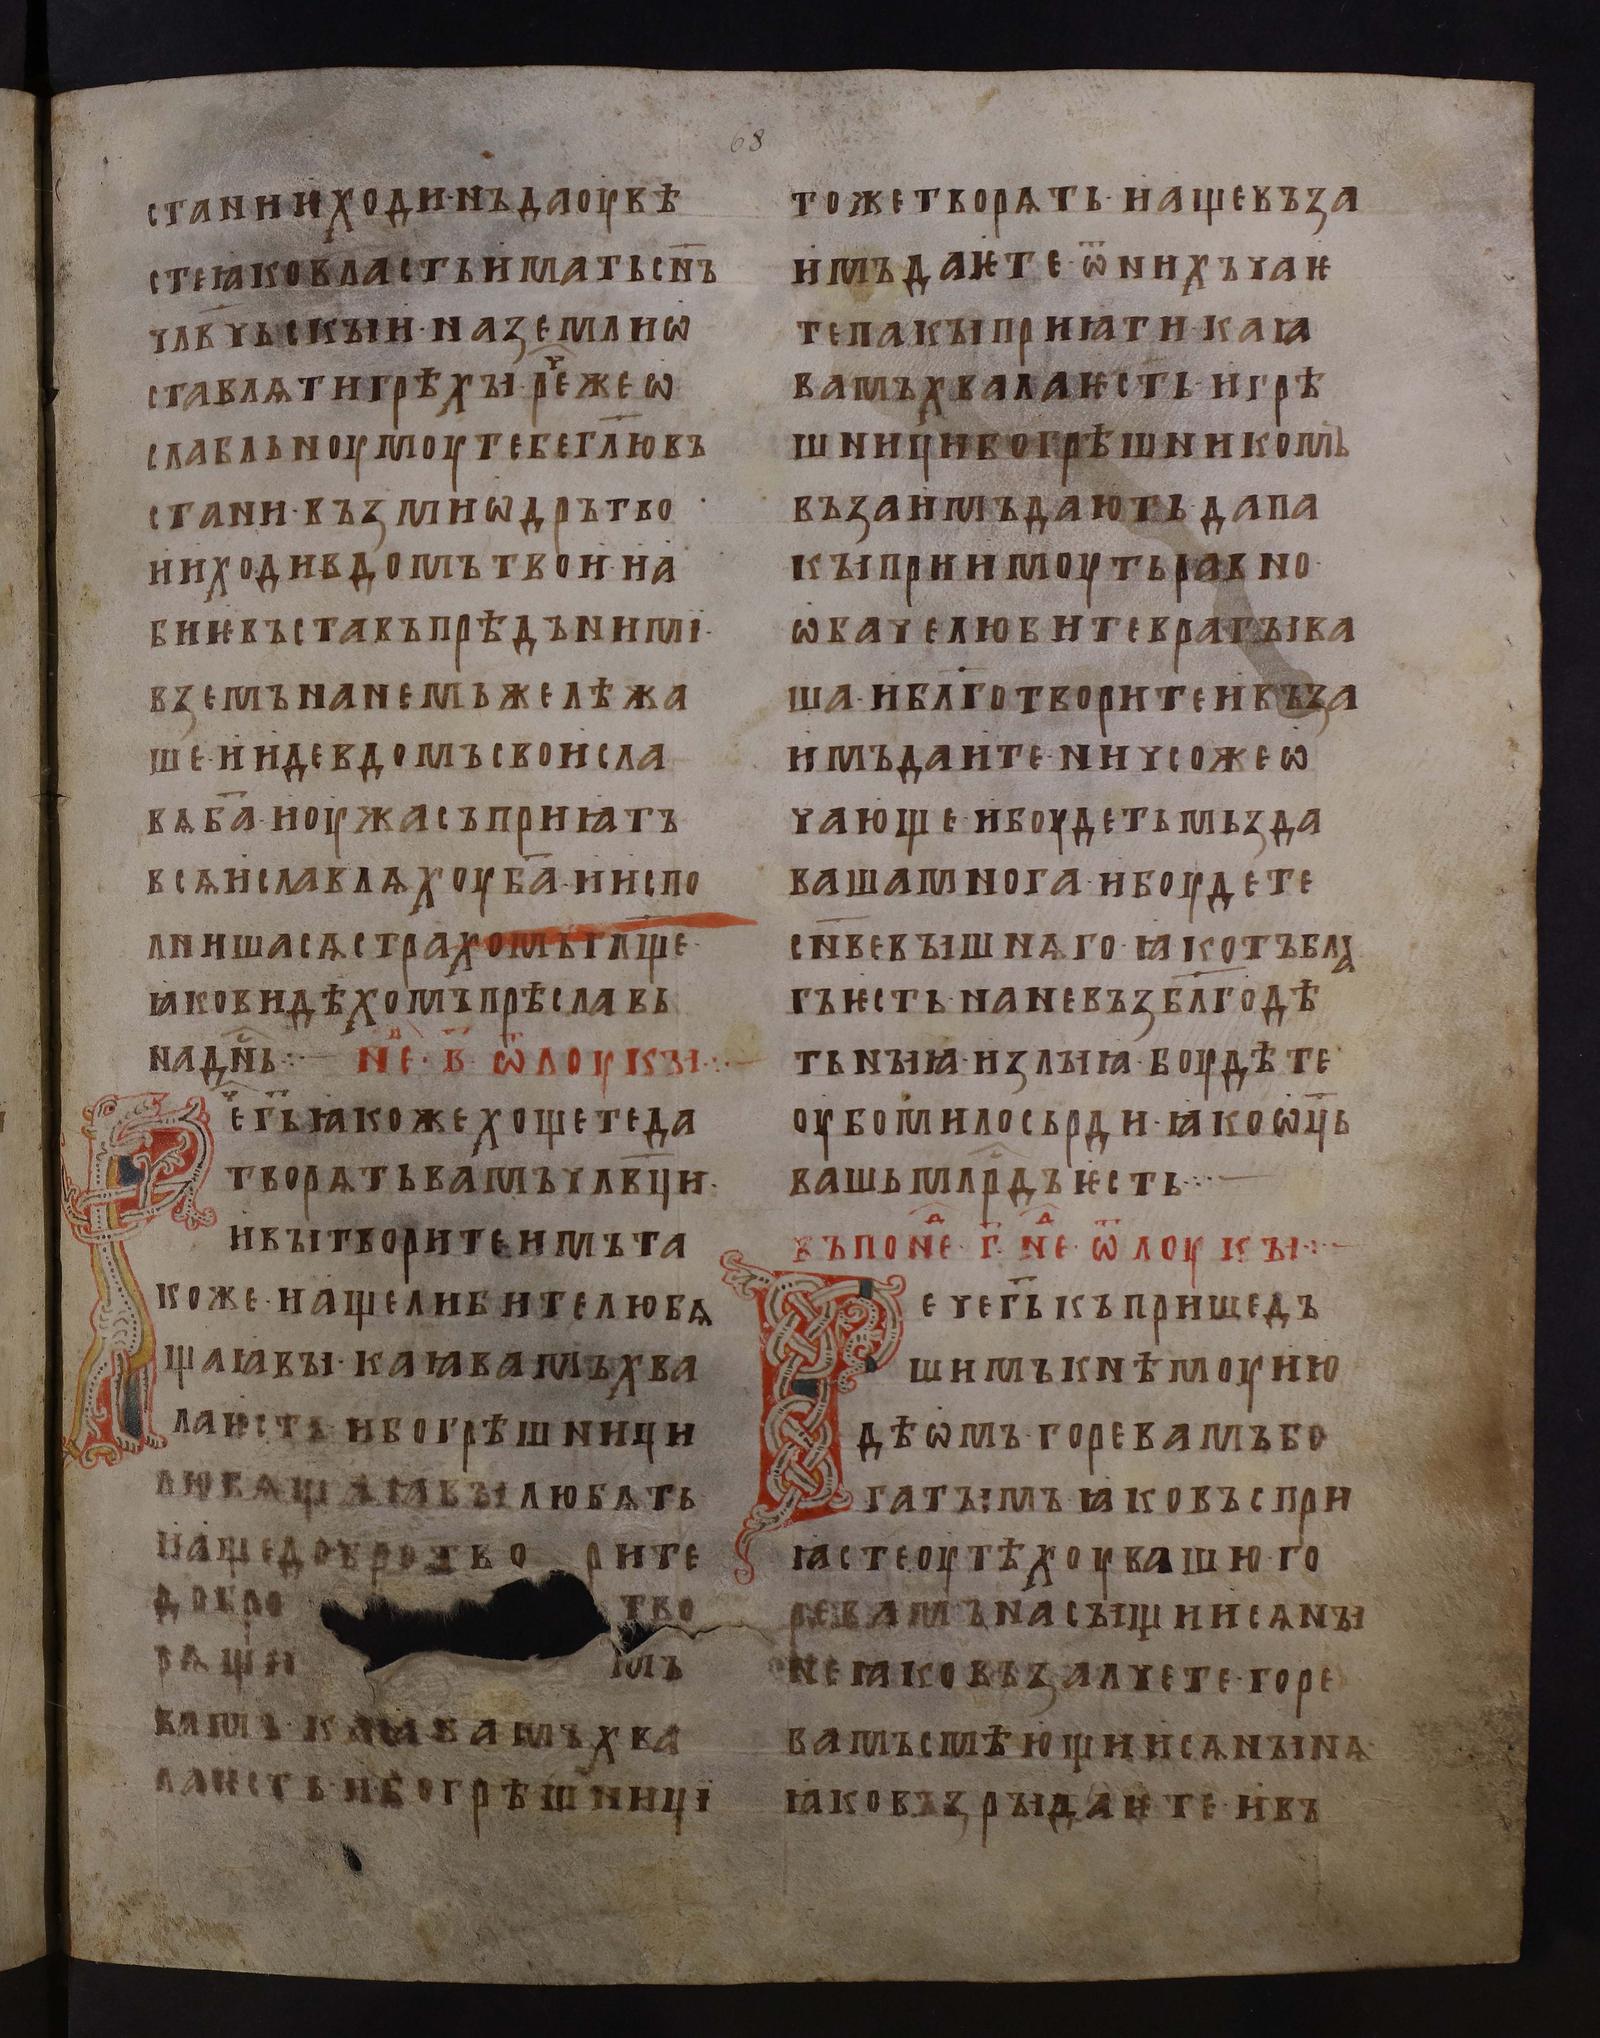 68
стани и ходи· нъ да оувѣ
сте ꙗко власть имать сн҃ъ
члв҃чьскꙑи· на земли ѡ
ставлѧти грѣхꙑ· реⷱ҇ же ѡ
слабльноумоу тебе гл҃ю въ
стани· възми ѡдръ тво
и и ходи в домъ твои· и а
биѥ въставъ прѣдъ ними·
вземъ на немь же лѣжа
ше· и иде в домъ свои сла
вѧ б҃а· и оужасъ приꙗтъ
всѧ и славлѧхоу б҃а· и испо
лнишасѧ страхомъ гл҃ще·
ꙗко видѣхомъ прѣславь
на дн҃ь·:· неⷣ· в҃· ѿ лоукꙑ·:·
Рⷱ҇е г҃ь ꙗкоже хощете да
творѧть вамъ члв҃ци·
и вꙑ творите имъ та
коже· и аще ли бите любѧ
щаꙗ вꙑ· каꙗ вамъ хва
ла ѥсть ибо грѣшници
любѧщаꙗ вꙑ любѧть
и аще добротво рите
добро тво
рѧщи мъ
вамъ· каꙗ вамъ хва
ла ѥсть· ибо грѣшници
тоже творѧть· и аще въза
имъ даѥте· ѿ нихъ чаѥ
те пакꙑ приꙗти· каꙗ
вамъ хвала ѥсть· и грѣ
шници во грѣшникомъ
възаимъ дають· да па
кꙑ приимоуть равно·
ѡбаче любите врагꙑ ва
ша· и бл҃готворите и въза
имъ даите· ничсоже ѡ
чающе· и боудеть мьзда
ваша многа· и боудете
сн҃ве вꙑшнѧго· ꙗко тъ бла
гъ ѥсть· на невъзбл҃годѣ
тьнꙑꙗ· и злꙑꙗ· боудѣте
оубо милосьрди· ꙗко ѡц҃ь
вашь млр҃дъ ѥсть·:·
въ поⷩ҇е г҃· неⷣ· ѿ лоукꙑ·:·
Рече г҃ь къ пришедъ
шимъ к нѣмоу ию
дѣѡмъ· горе вамъ бо
гатꙑмъ ꙗко въспри
ꙗсте оутѣхоу вашю· го
ре вамъ насꙑщиисѧ нꙑ
не ꙗко възалчете· горе
вамъ смѣющиисѧ нꙑнѧ·
ꙗко възрꙑдаѥте· и въ